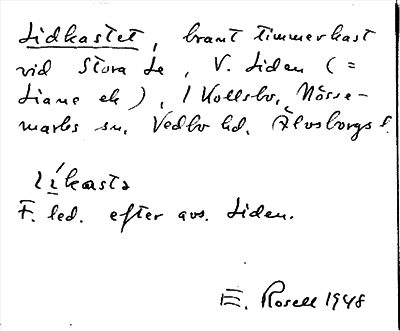 Lidkastet, brant timmerkast
vid Stora Le, V. Liden (=
Liane ek), / Kollsbo, Nösse-
marks sn, Vedbo hd, Älvsborgs l.
Líkasta
F. led. efter avs. Liden.
E. Rosell 1948